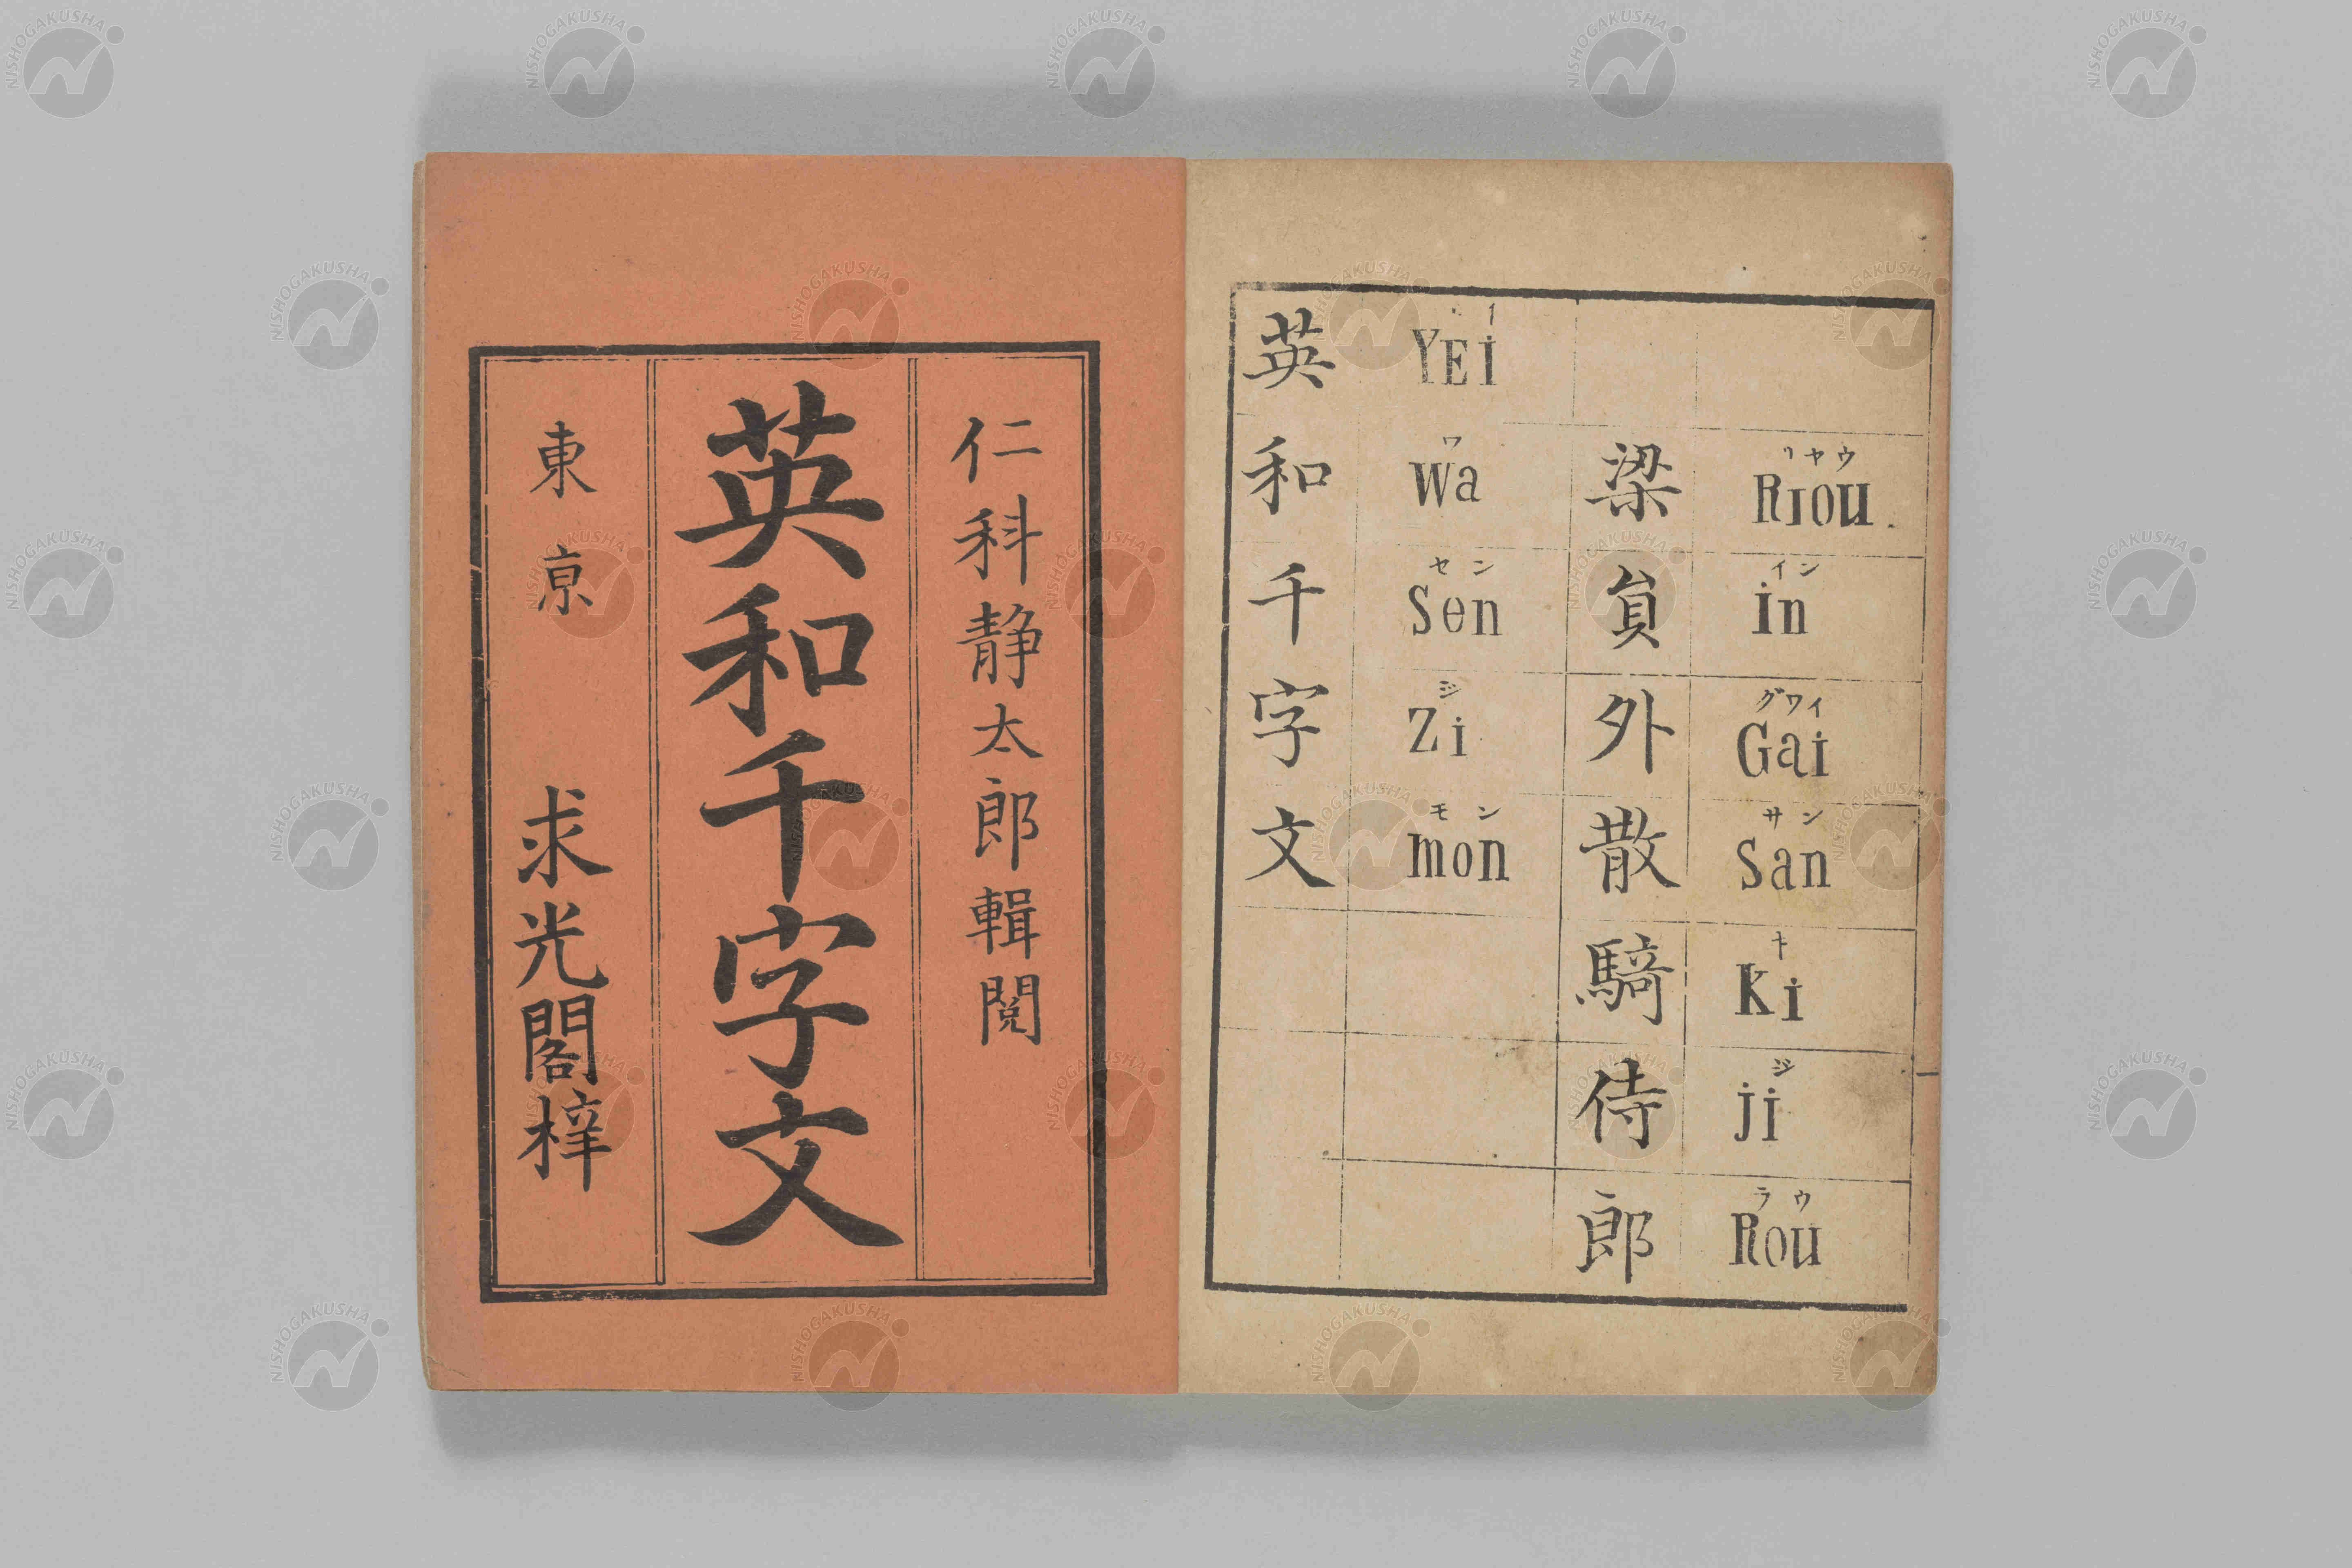 リヤウ イン グワイ サン キ ジ ラウ
RIOU. in Gai San Ki ji ROU
梁貟外散騎侍郎
イ ワ セン ジ モン
YEi Wa Sen Zi mon
英和千字文
仁科静太郎輯閲
英和千字文
東亰 求光閣梓
NISHOGAKUSHA